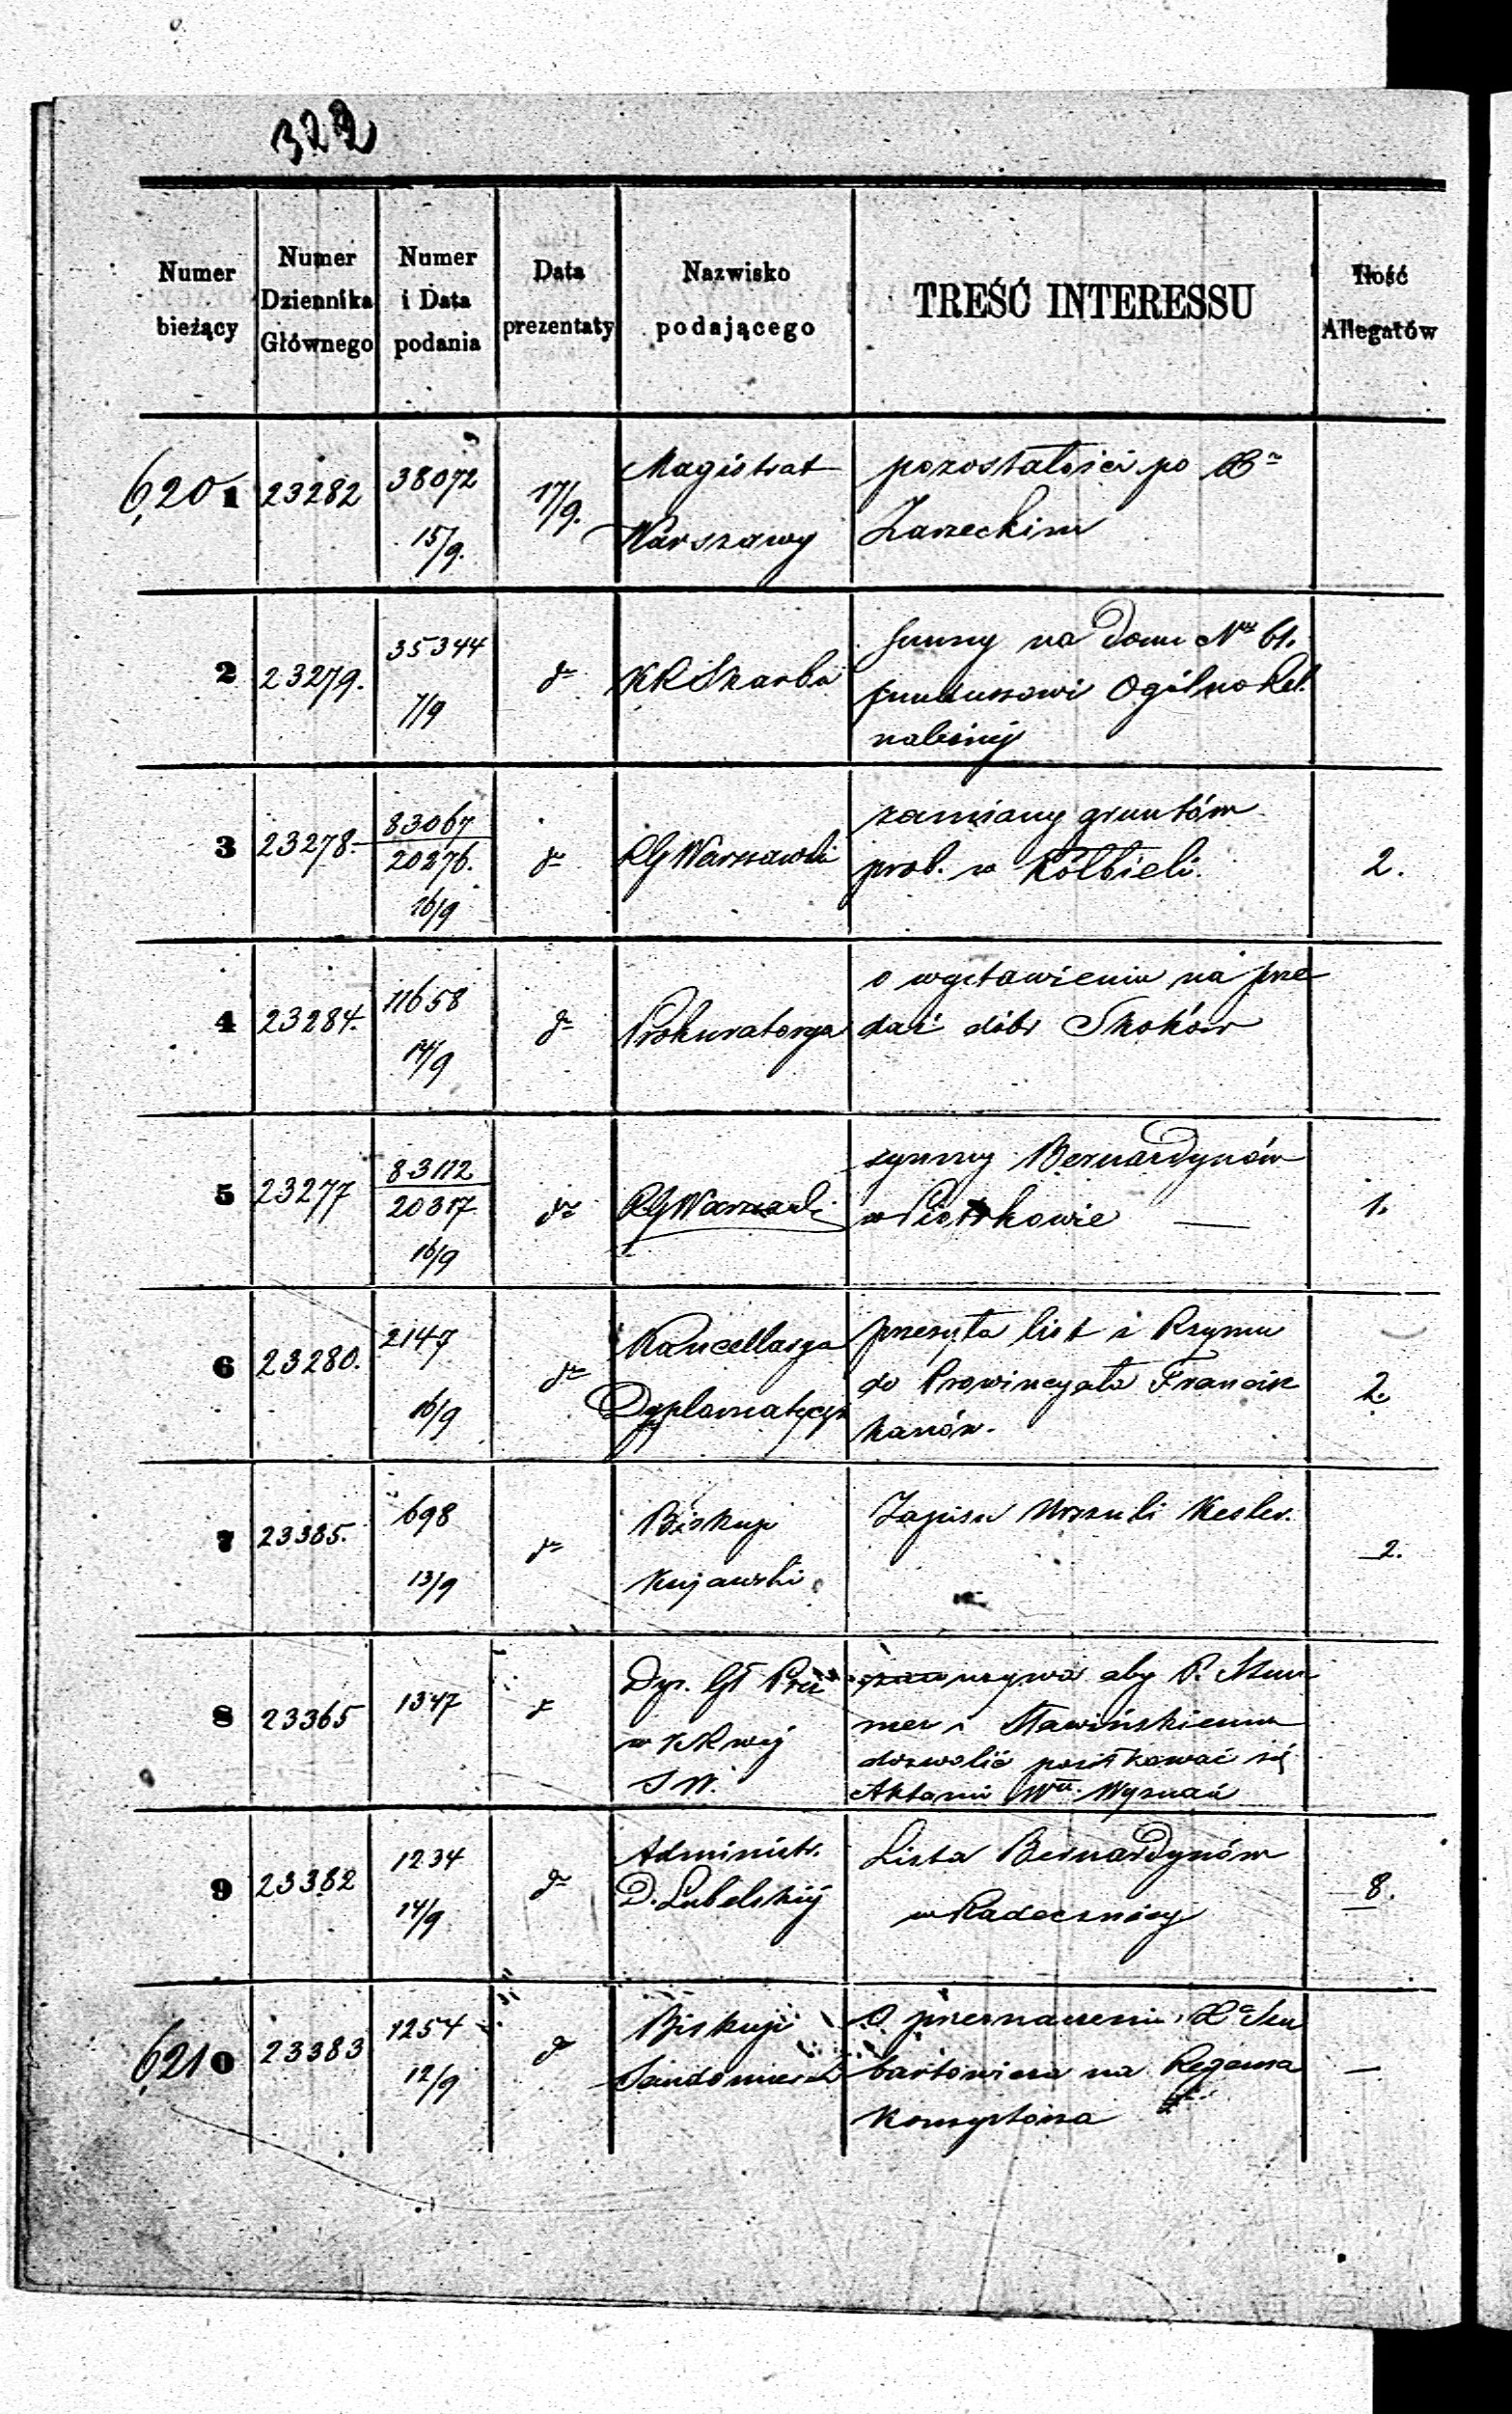 322
Numer bieżący
Numer Dziennika Głównego
Numer i Data podania
Data prezentaty
Nazwisko podającego
TREŚĆ INTERESSU
Ilość Allegatów
6,201 23282 38072 15/9. 17/9. Magistrat Warszawy
pozostałości po
Zarzeckim
2 23279. 35344 7/9 dto KRSkarbu
Summy na Domu Nr 61.
funduszowi Ogólno Rel.
należnej
3 23278. 83067 20276. 16/9 dto RG Warszawski
zamiany gruntów
prob. w Kołbieli. 2.
4 23284. 11658 14/9 dto Prokuratorya
o wystawieniu na prze
daż dóbr Skoków
5 23277 83112 20317. 16/9 dto RG Warszawski
summy Bernardynów
w Piotrkowie — 1.
6 23280. 2147 16/9 dto Kancellarya Dyplomatycz
przesyła list z Rzymu
do Prowincyała Francisz
kanów. 2.
7 23385. 698 13/9 dto Biskup Kujawski
Zapisu Urszuli Kesler. 2.
8 23365 1347 dto Dyr. Gł Prez w KRwej SW.
wzywa aby P. Szum
mer i Sławińskiemu
dozwolić posiłkować się
Aktami Wu. Wyznań
9 23382 1234 14/9 dto Administr. D. Lubelskij
Lista Bernardynów
w Radecznicy 8.
6,210 23383 1254 12/9 dto Biskup Sandomiersk
O przeznaczeniu Xa Szu
bartowicza na Regensa
Konsystorza —